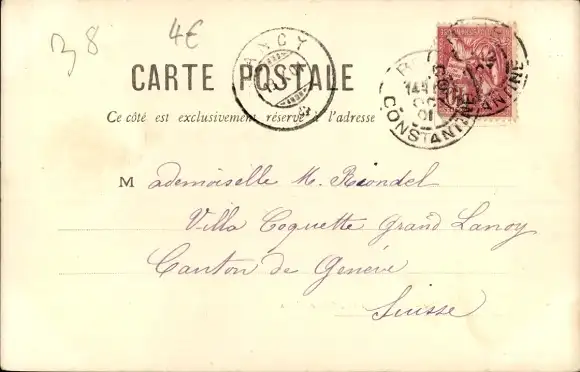 B 8 4€
CARTE POSTALE
Ce côté est exclusivement réservé à l'adresse
ANCY
CONSTANTINE
CONSTANTINE
Mademoiselle M. Riondel
Villa Coquette Grand Lancy
Canton de Genève
Suisse